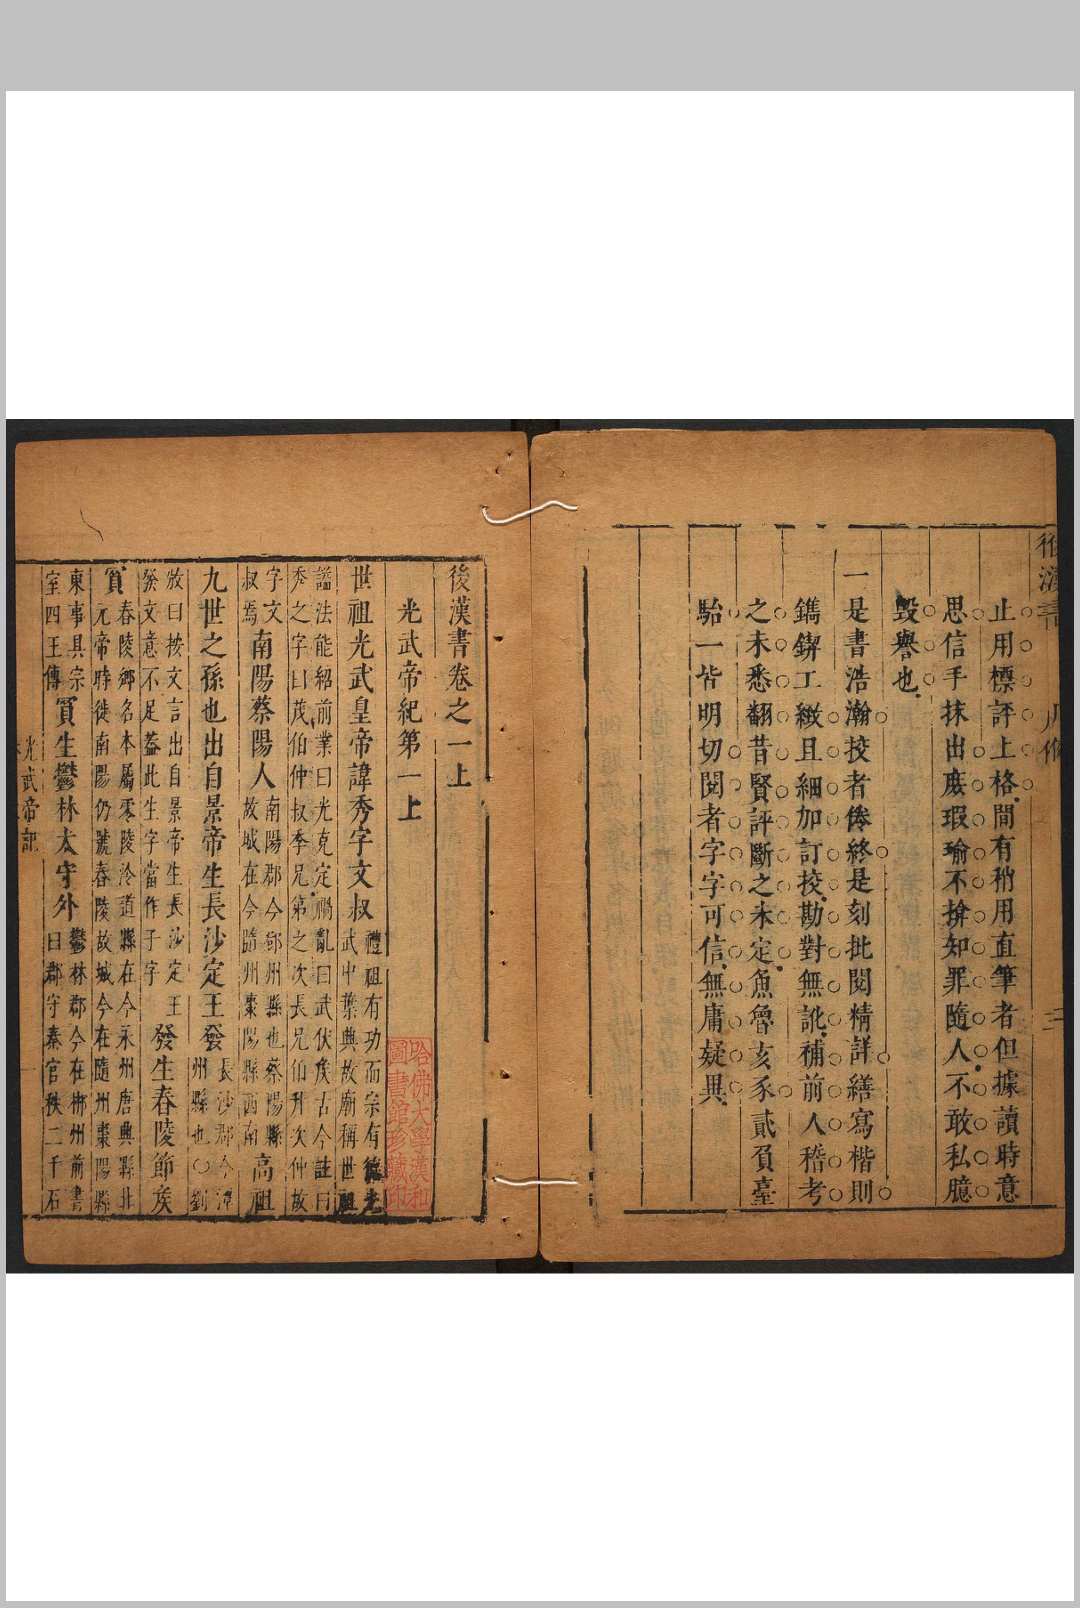 後漢書 凡例 三
止用標評上格間有稍用直筆者但據讀時意
思信手抹出庶瑕瑜不揜知罪隨人不敢私臆
毀譽也
一是書浩瀚挍者倦終是刻批閱精詳繕寫楷則
鐫鍥工緻且細加訂挍勘對無訛補前人稽考
之未悉翻昔賢評斷之未定魚魯亥豕貳負臺
駘一皆明切閱者字字可信無庸疑異
後漢書卷之一上
光武帝紀第一上
哈佛大學漢和
圖書館珍藏印
世祖光武皇帝諱秀字文叔 禮祖有功而宗有德光
武中葉興故廟稱世祖
謚法能紹前業曰光克定禍亂曰武伏矦古今註曰
秀之字曰茂伯仲叔季兄第之次長兄伯升次仲故
字文
叔焉 南陽蔡陽人 南陽郡今鄧州縣也蔡陽縣
故城在今隨州棗陽縣西南 高祖
九世之孫也出自景帝生長沙定王發 長沙郡今潭
州縣也○劉
攽曰按文言出自景帝生長沙定王
發文意不足蓋此生字當作子字 發生舂陵節矦
買 舂陵鄉名本屬零陵泠道縣在今永州唐興縣北
元帝時徙南陽仍號舂陵故城今在隨州棗陽縣
東事具宗
室四王傳 買生鬱林太守外 鬱林郡今在郴州前書
曰郡守秦官秩二千石
光武帝記
一